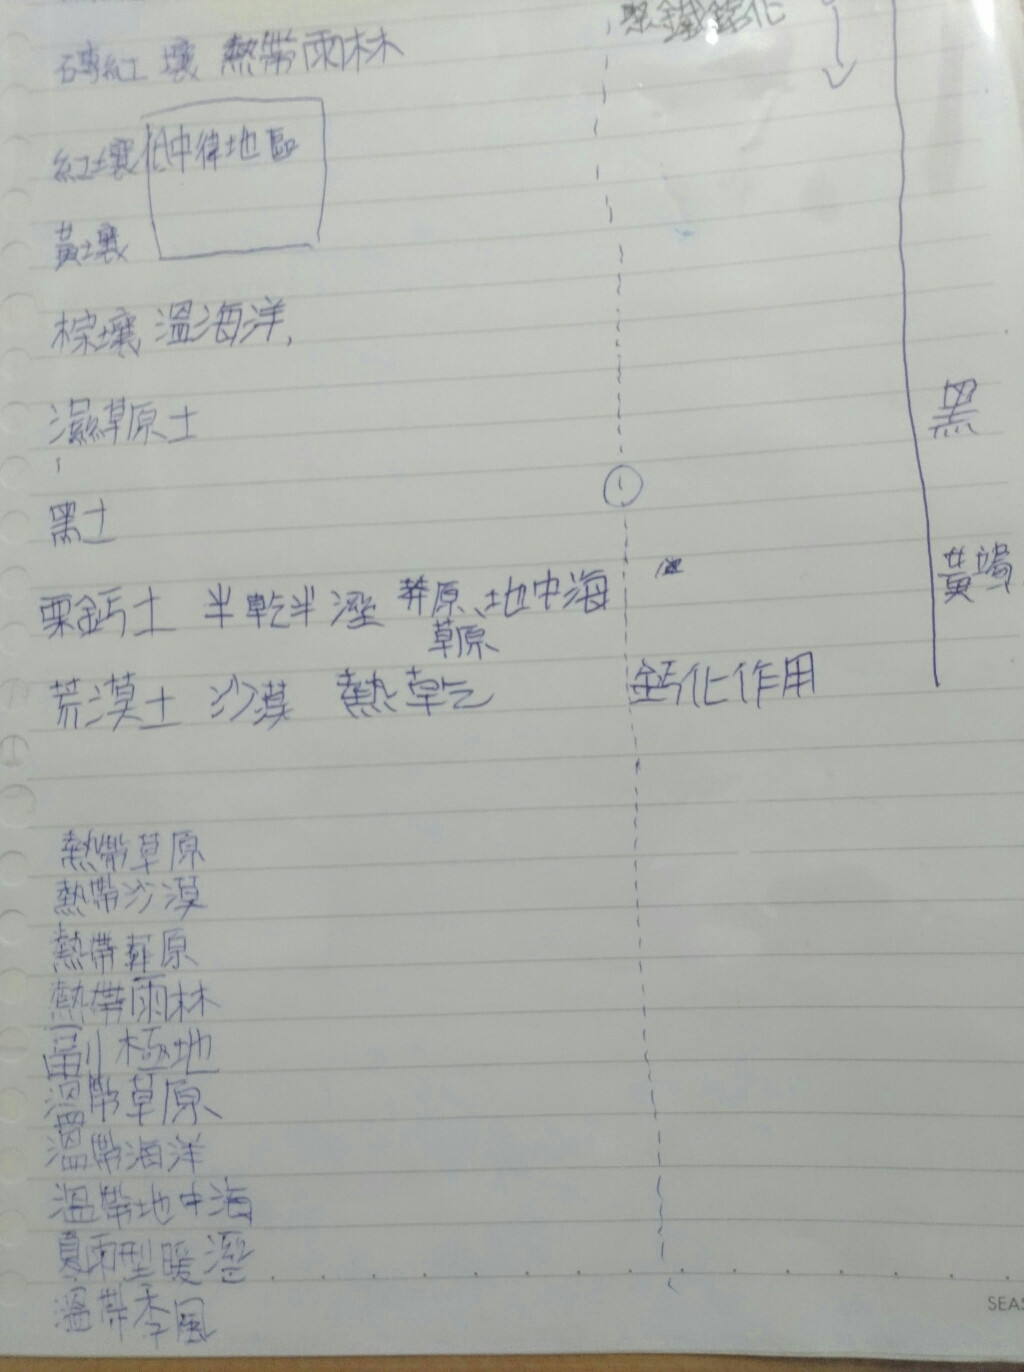 聚鐵鋁化
磚紅壤 熱帶雨林
紅壤 低中緯地區
黃壤
棕壤 溫海洋,
濕草原土
黑
黑土
黃壤
栗鈣土 半乾半溼 莽原、地中海
草原、
荒漠土 沙漠 熱乾 鈣化作用
熱帶草原
熱帶沙漠
熱帶莽原
熱帶雨林
副極地
溫帶草原、
溫帶海洋
溫帶地中海
夏雨型暖溼
溫帶季風
SEAS